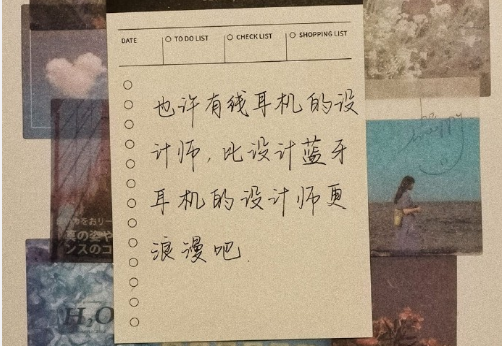 DATE
TO DO LIST
CHECK LIST
SHOPPING LIST
也许有线耳机的设
计师，比设计蓝牙
耳机的设计师更
浪漫吧.
happy
夏の姿や
ンスのコ
H₂O